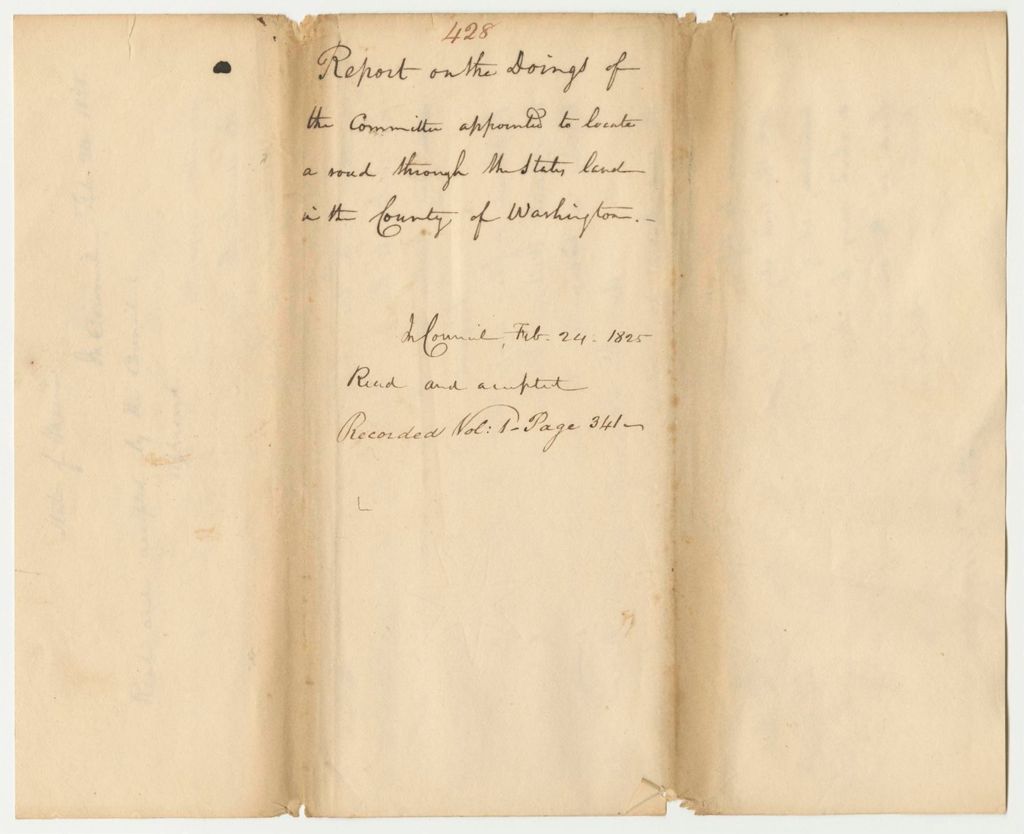 428
Report on the Doings of
the Committee appointed to locate
a road through the States land
in the County of Washington.-
In Council, Feb. 24. 1825
Read and accepted
Recorded Vol: 1- Page 341-